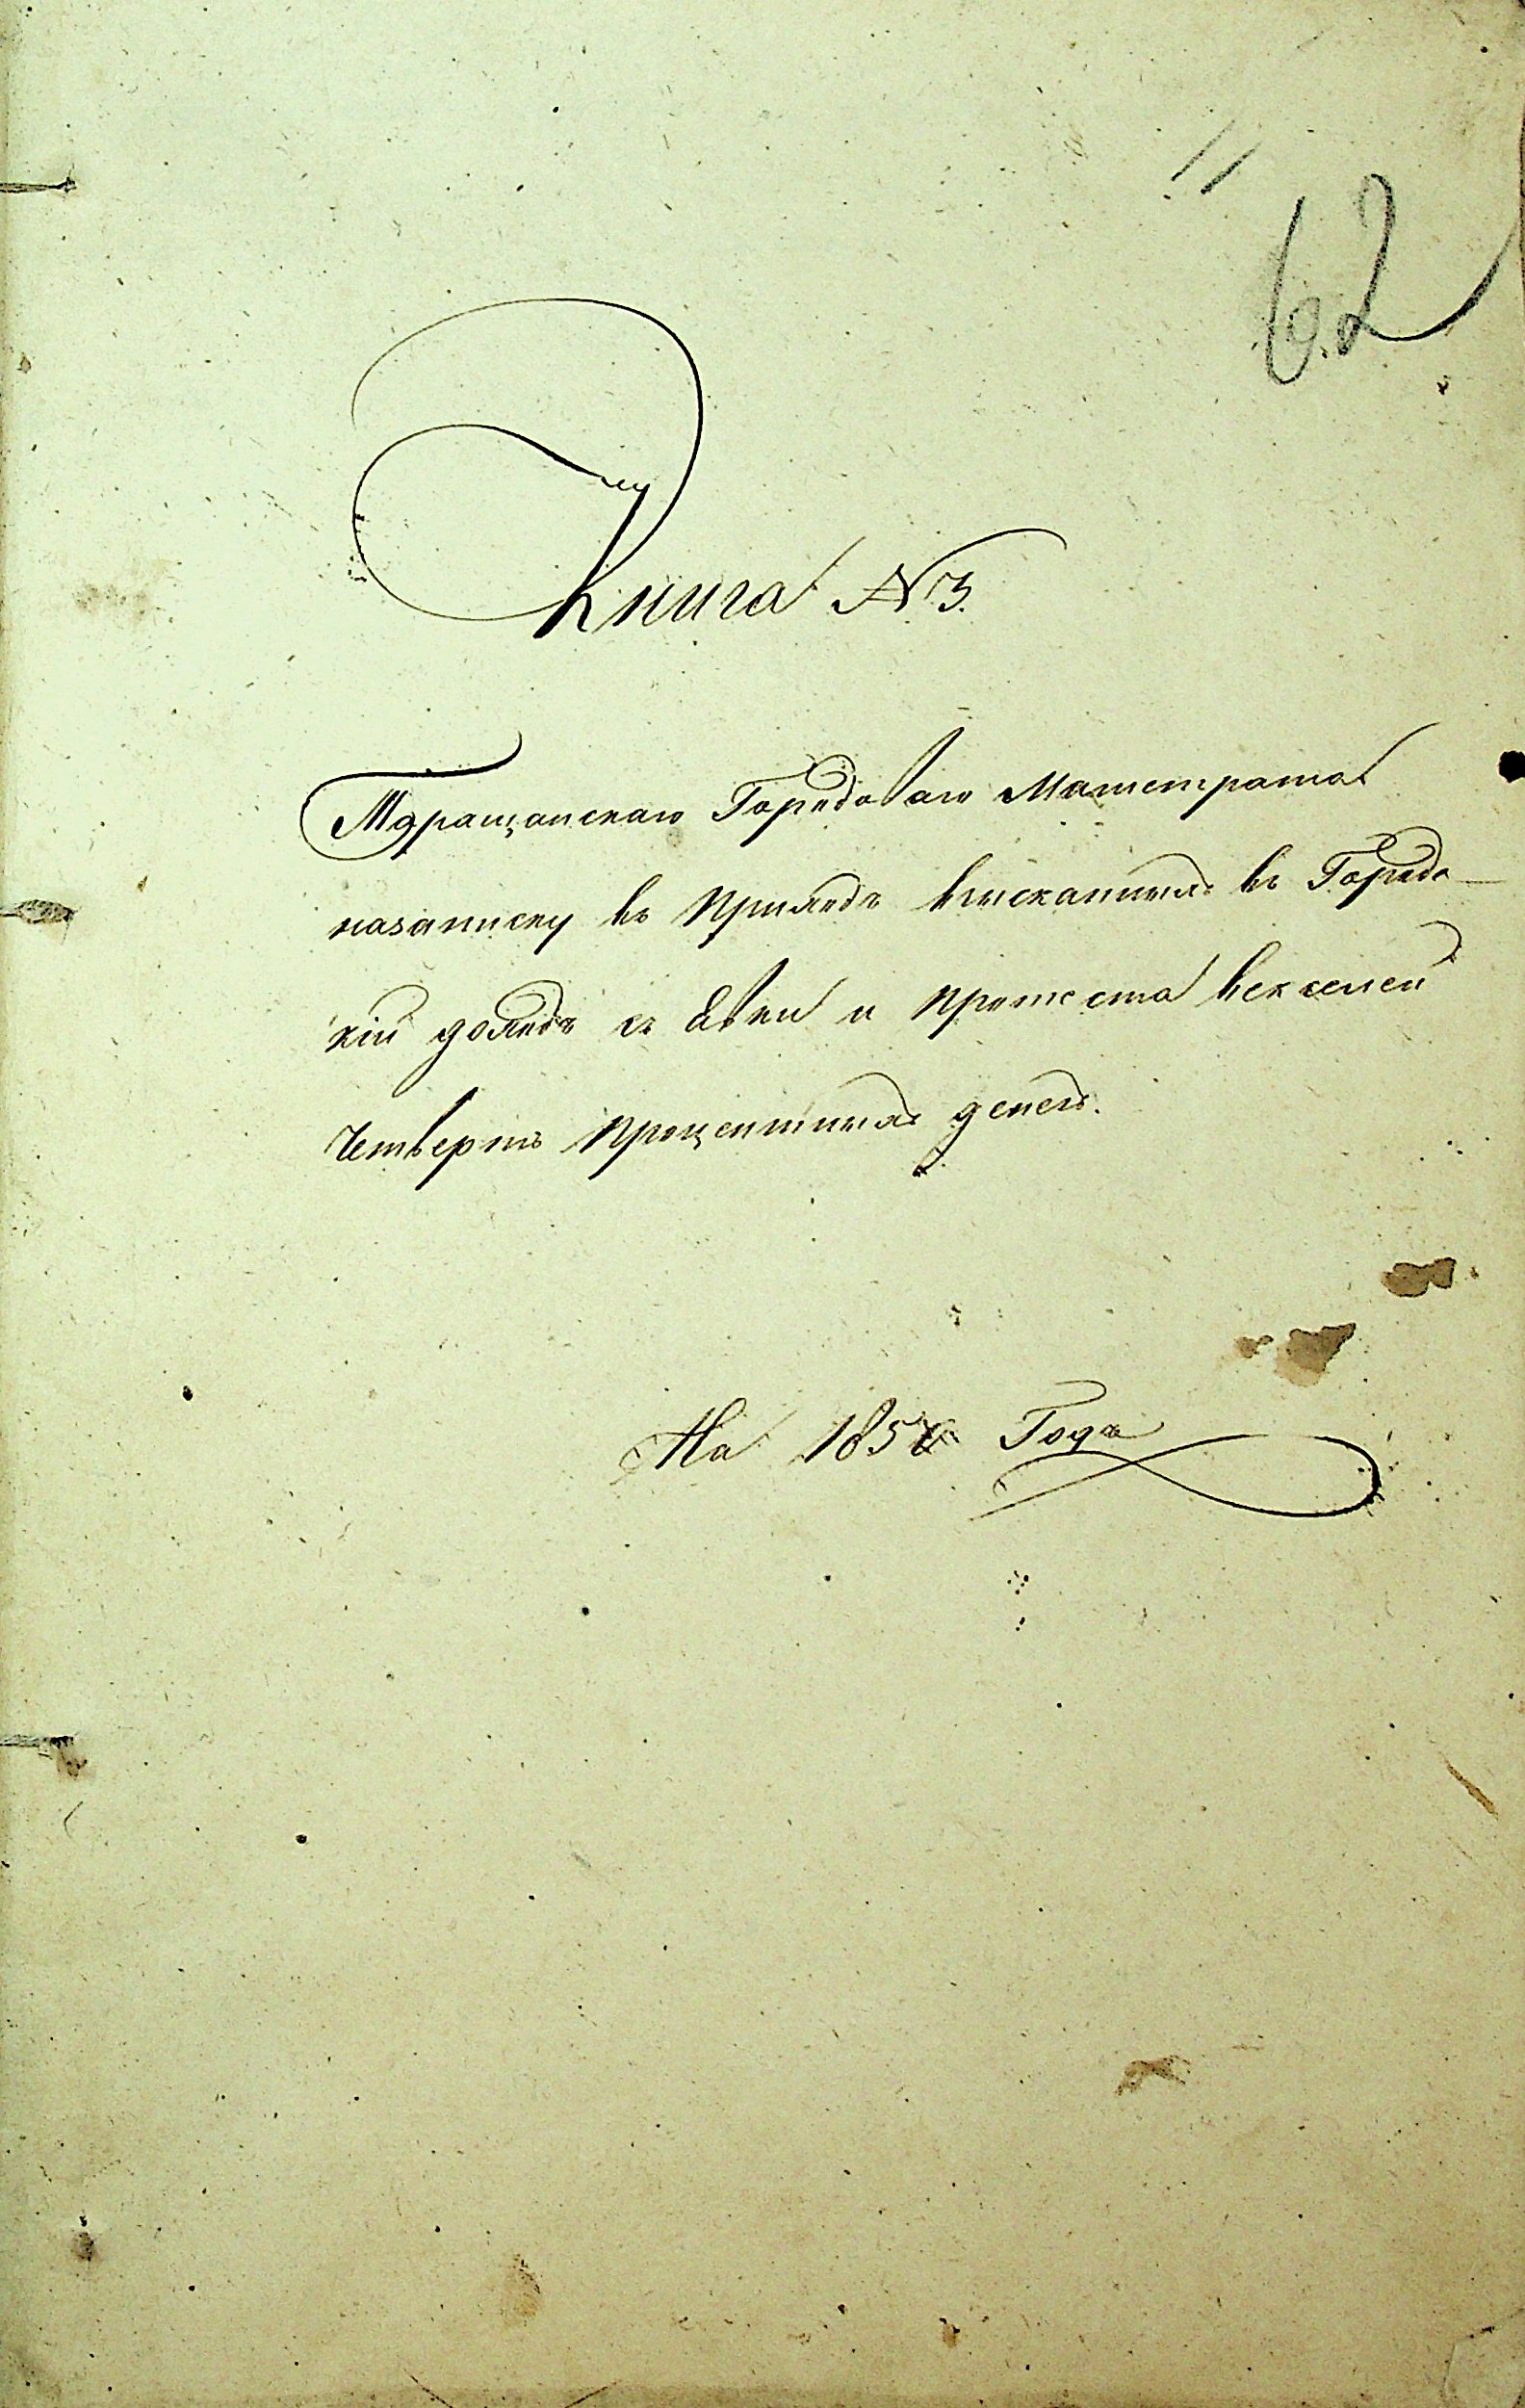 62
Книга № 3.
Мдращанскаго Городоваго Магистрата
назаписку въ Приходъ взысканныхъ въ Городс
кій доходъ съ Явки и протеста векселей
Четверть процентныхъ денегъ.
На 185 Года